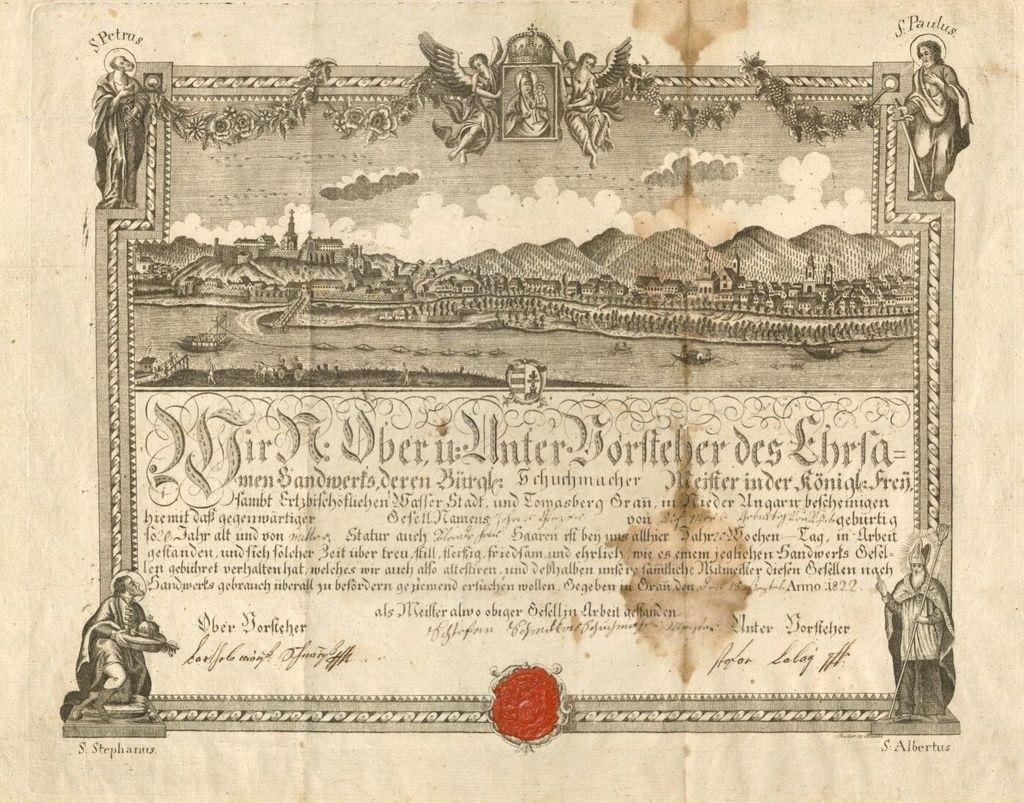 S. Petrus
S. Paulus.
Wir N: Ober, u: Unter Vorsteher des Ehrsa=
men Handwerks, deren Bürgl: Schuchmacher Meister in der Königl: Freÿ,
sambt Ertzbischöflichen Wasser Stadt, und Tomasberg Gran, in Nieder Ungarn bescheinigen
hiemit daß gegenwärtiger Gesell Namens von gebürtig
so 20 Jahr alt und von mittler Statur auch Haaren ist bey uns allhier Jahr Wochen Tag, in Arbeit
gestanden, und sich solcher Zeit über treu, still, fleisig, friedsam, und ehrlich, wie es einem jeglichen Handwerks Gesel-
len gebühret verhalten hat, welches wir auch also attestiren, und deßhalben unsere sämtliche Mitmeister diesen Gesellen nach
Handwerks gebrauch überall zu befördern geziemend ersuchen wollen. Gegeben in Gran, den Anno 1822.
als Meister alwo obiger Gesell in Arbeit gestanden.
Ober Vorsteher Unter Vorsteher
S. Stephanus.
S. Albertus